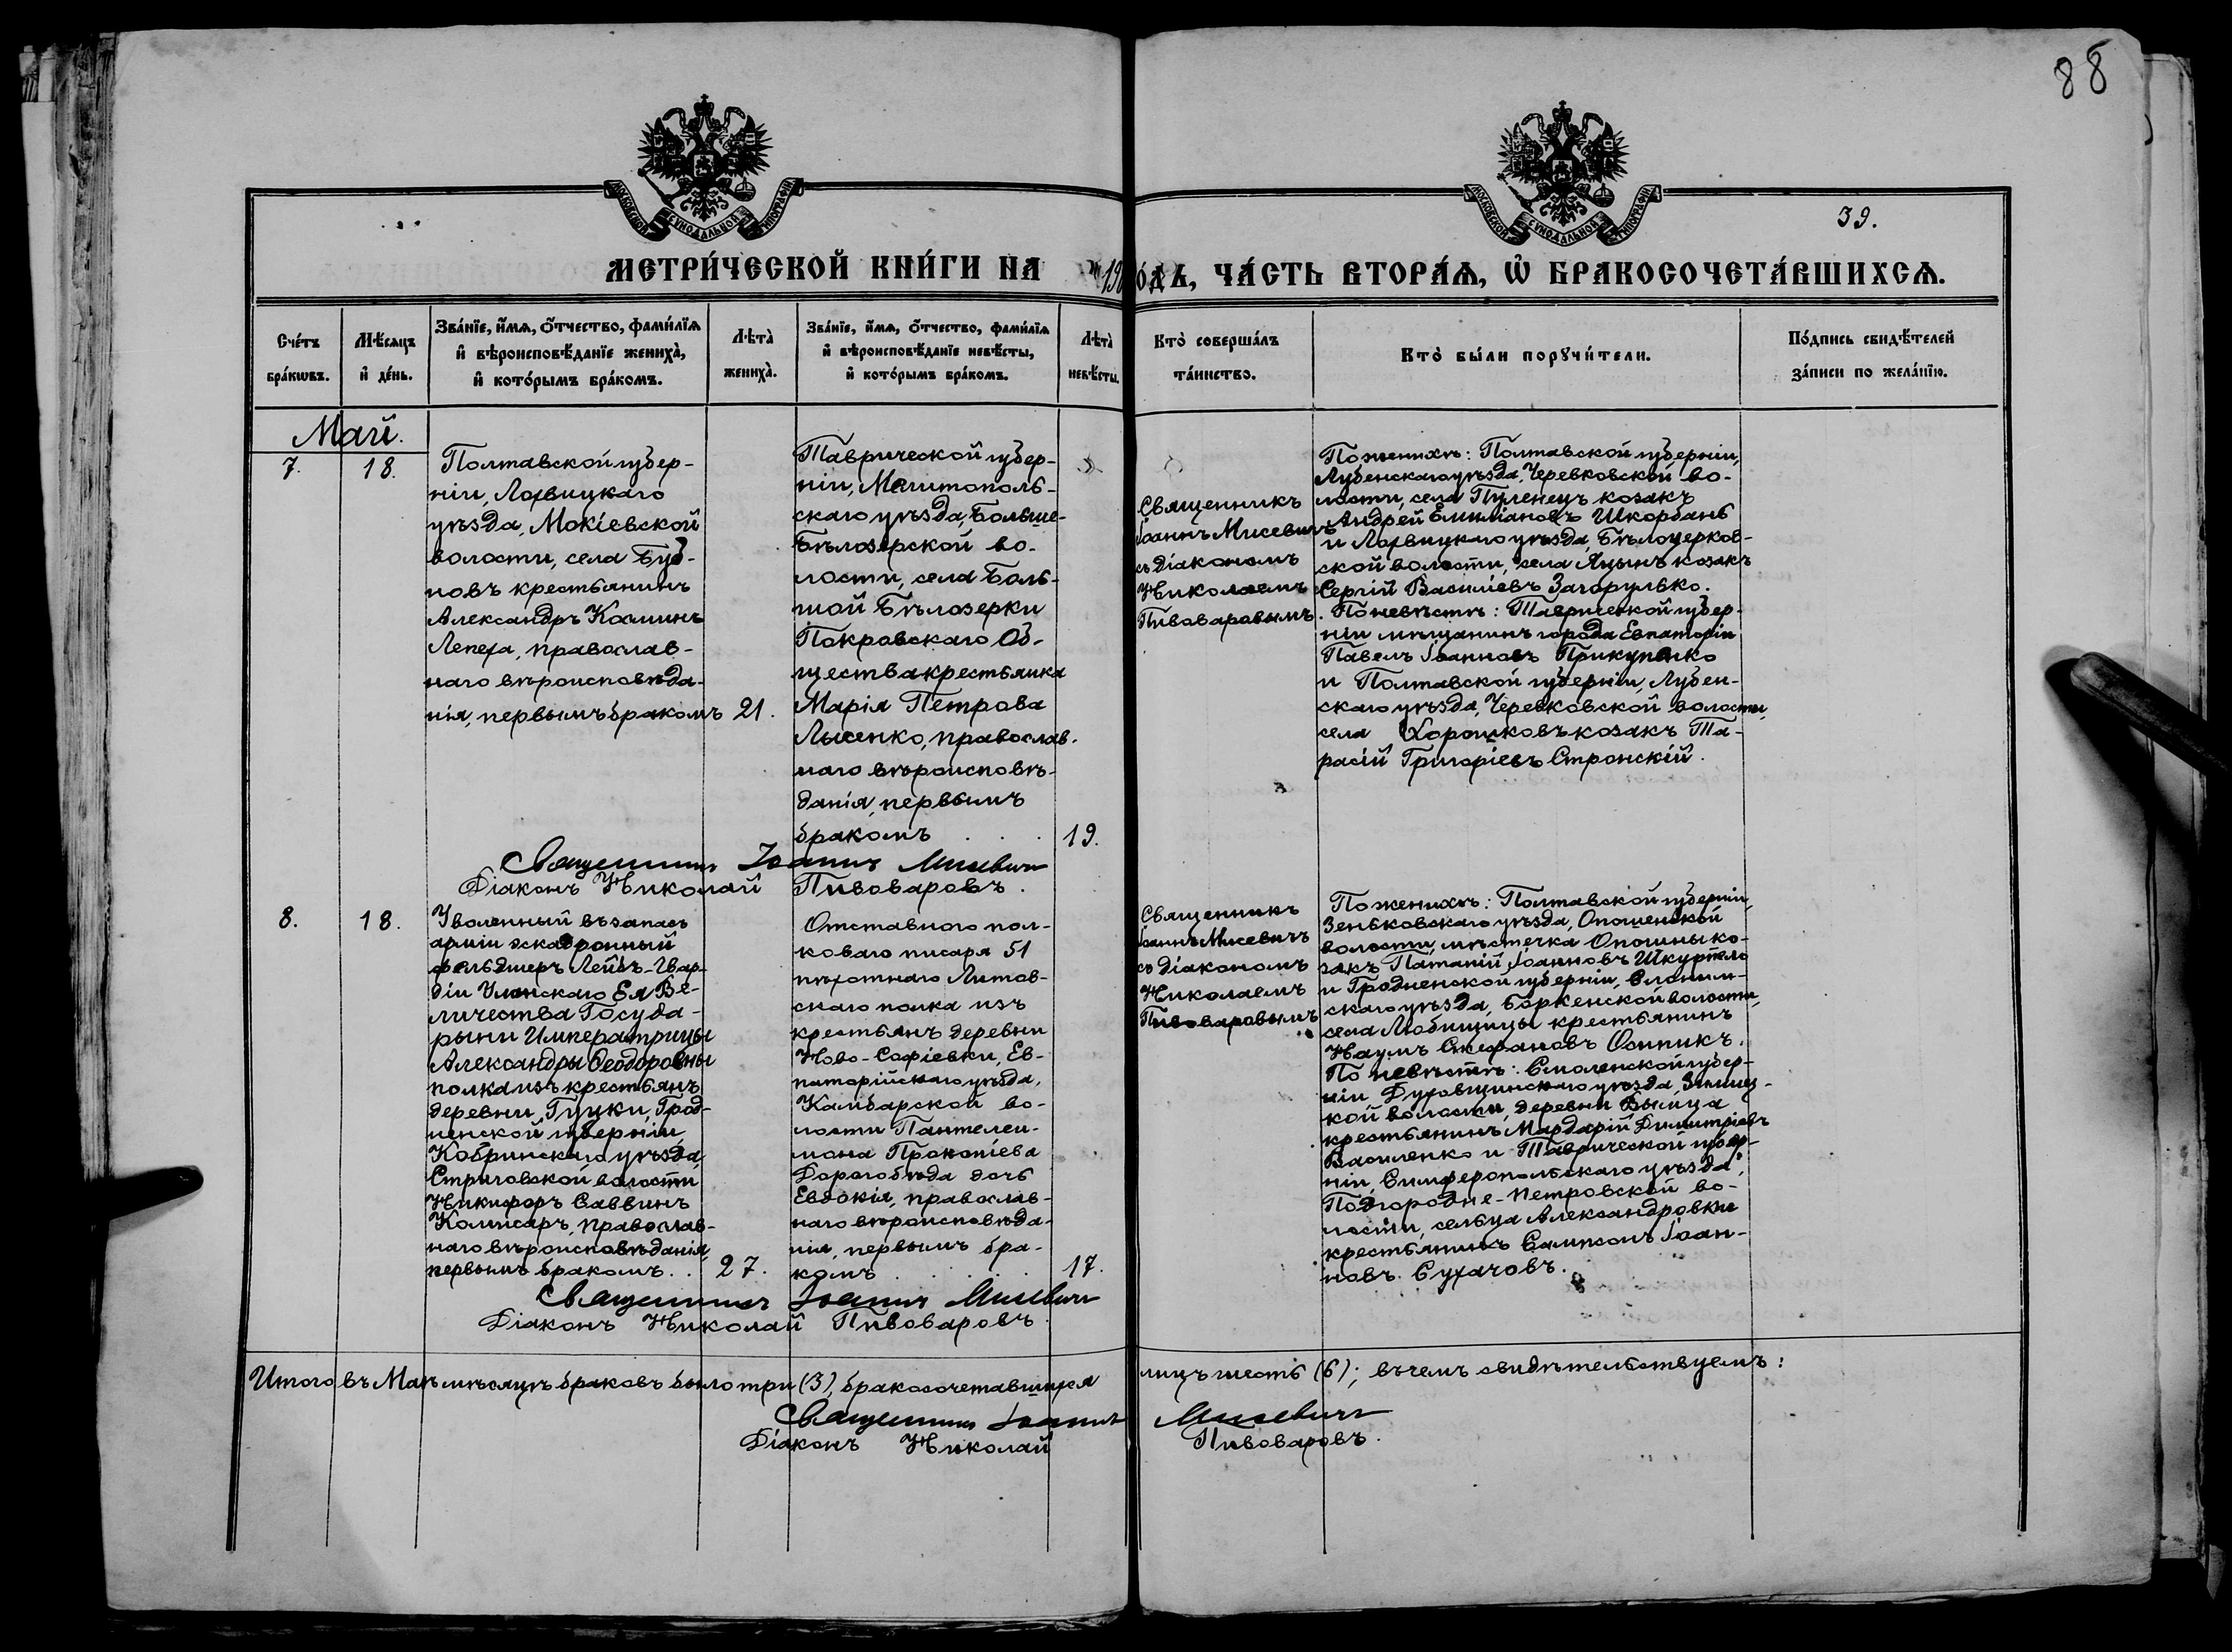 88
МОСКОВСКОЙ СѴНОДАЛЬНОЙ ТИПОГРАФІИ
МОСКОВСКОЙ СѴНОДАЛЬНОЙ ТИПОГРАФІИ
39.
МЕТРИ́ЧЕСКОЙ КНИ́ГИ НА
О́ДЪ, ЧА́СТЬ ВТОРА́Ѧ, Ѡ҆ БРАКОСОЧЕТА́ВШИХСѦ.
Сче́тъ
бра́кѡвъ.
Мѣ́сѧцъ
и҆ де́нь.
Зва́нїе, и҆́мѧ, ѻ҆́тчество, фами́лїѧ
и҆ вѣроисповѣ́данїе жениха̀,
и҆ кото́рымъ бра́комъ.
Лѣта̀
жениха̀.
Зва́нїе, и҆́мѧ, ѻ҆́тчество, фами́лїѧ
и҆ вѣроисповѣ́данїе невѣ́сты,
и҆ кото́рымъ бра́комъ.
Лѣта̀
невѣ́сты.
Кто̀ соверша́лъ
та́инство.
Кто̀ бы́ли порꙋчи́тели.
По́дпись свидѣ́телей
за́писи по жела́нїю.
Май.
7.
18.
Полтавской губер-
ніи, Лохвицкаго
уѣзда, Мокіевской
волости, села Буд-
новъ крестьянинъ
Александръ Косминъ
Лепеха, православ-
наго вѣроисповѣда-
нія, первымъ бракомъ
21.
Таврической губер-
ніи, Мелитополь-
скаго уѣзда, Больше-
Бѣлозерской во-
лости, села Боль-
шой Бѣлозерки
Покровскаго Об-
щества крестьянка
Марія Петрова
Лысенко, православ-
наго вѣроисповѣ-
данія, первымъ
бракомъ
19.
Священникъ
Іоаннъ Мисевичъ
съ діакономъ
Николаемъ
Пивоваровымъ.
По женихѣ: Полтавской губерніи,
Лубенскаго уѣзда, Черевковской во-
лости, села Пулинецъ козакъ
Андрей Емиліановъ Шкорбань
и Лохвицкаго уѣзда, Бѣлоцерков-
ской волости, села Яцынъ козакъ
Сергій Василіевъ Загорулько.
По невѣстѣ: Таврической губер-
ніи мѣщанинъ города Евпаторіи
Павелъ Іоанновъ Прикупенко
и Полтавской губерніи, Лубен-
скаго уѣзда, Черевковской волости,
села Хорошковъ козакъ Та-
расій Григоріевъ Стронскій.
Священникъ Іоаннъ Мисевичъ
Діаконъ Николай Пивоваровъ.
8.
18.
Уволенный въ запасъ
арміи эскадронный
фельдшеръ Лейбъ-Гвар-
діи Уланскаго Ея Ве-
личества Госуда-
рыни Императрицы
Александры Ѳеодоровны
полка изъ крестьянъ
деревни Гуцки, Грод-
ненской губерніи,
Кобринскаго уѣзда,
Стриговской волости
Никифоръ Саввинъ
Комисаръ, православ-
наго вѣроисповѣданія,
первымъ бракомъ. .
27.
Отставного пол-
коваго писаря 51
пѣхотнаго Литов-
скаго полка изъ
крестьянъ деревни
Ново-Софіевки, Ев-
паторійскаго уѣзда,
Камбарской во-
лости Пантелеи-
мона Прокопіева
Дорогобѣда дочь
Евдокія, православ-
наго вѣроисповѣда-
нія, первымъ бра-
комъ
17.
Священникъ
Іоаннъ Мисевичъ
съ діакономъ
Николаемъ
Пивоваровымъ
По женихѣ: Полтавской губерніи,
Зеньковскаго уѣзда, Опошенской
волости, мѣстечка Опошны ко-
закъ Потапій Іоанновъ Шкурпело
и Гродненской губерніи, Слоним-
скаго уѣзда, Боркенской волости,
села Любищицы крестьянинъ
Наумъ Стефановъ Осипикъ.
По невѣстѣ: Смоленской губер-
ніи Духовщинскаго уѣзда, Зимиц-
кой волости, деревни
крестьянинъ Мардарій Димитріевъ
Василенко и Таврической губер-
ніи, Симферопольскаго уѣзда,
Подгородне-Петровской во-
лости, сельца Александровки
крестьянинъ Сампсонъ Іоан-
новъ Сухачовъ.
Священникъ Іоаннъ Мисевичъ
Діаконъ Николай Пивоваровъ
Итого въ Маѣ мѣсяцѣ браковъ было три (3), бракосочетавшихся лицъ шесть (6); въ чемъ свидѣтельствуемъ:
Священникъ Іоаннъ Мисевичъ
Діаконъ Николай Пивоваровъ.